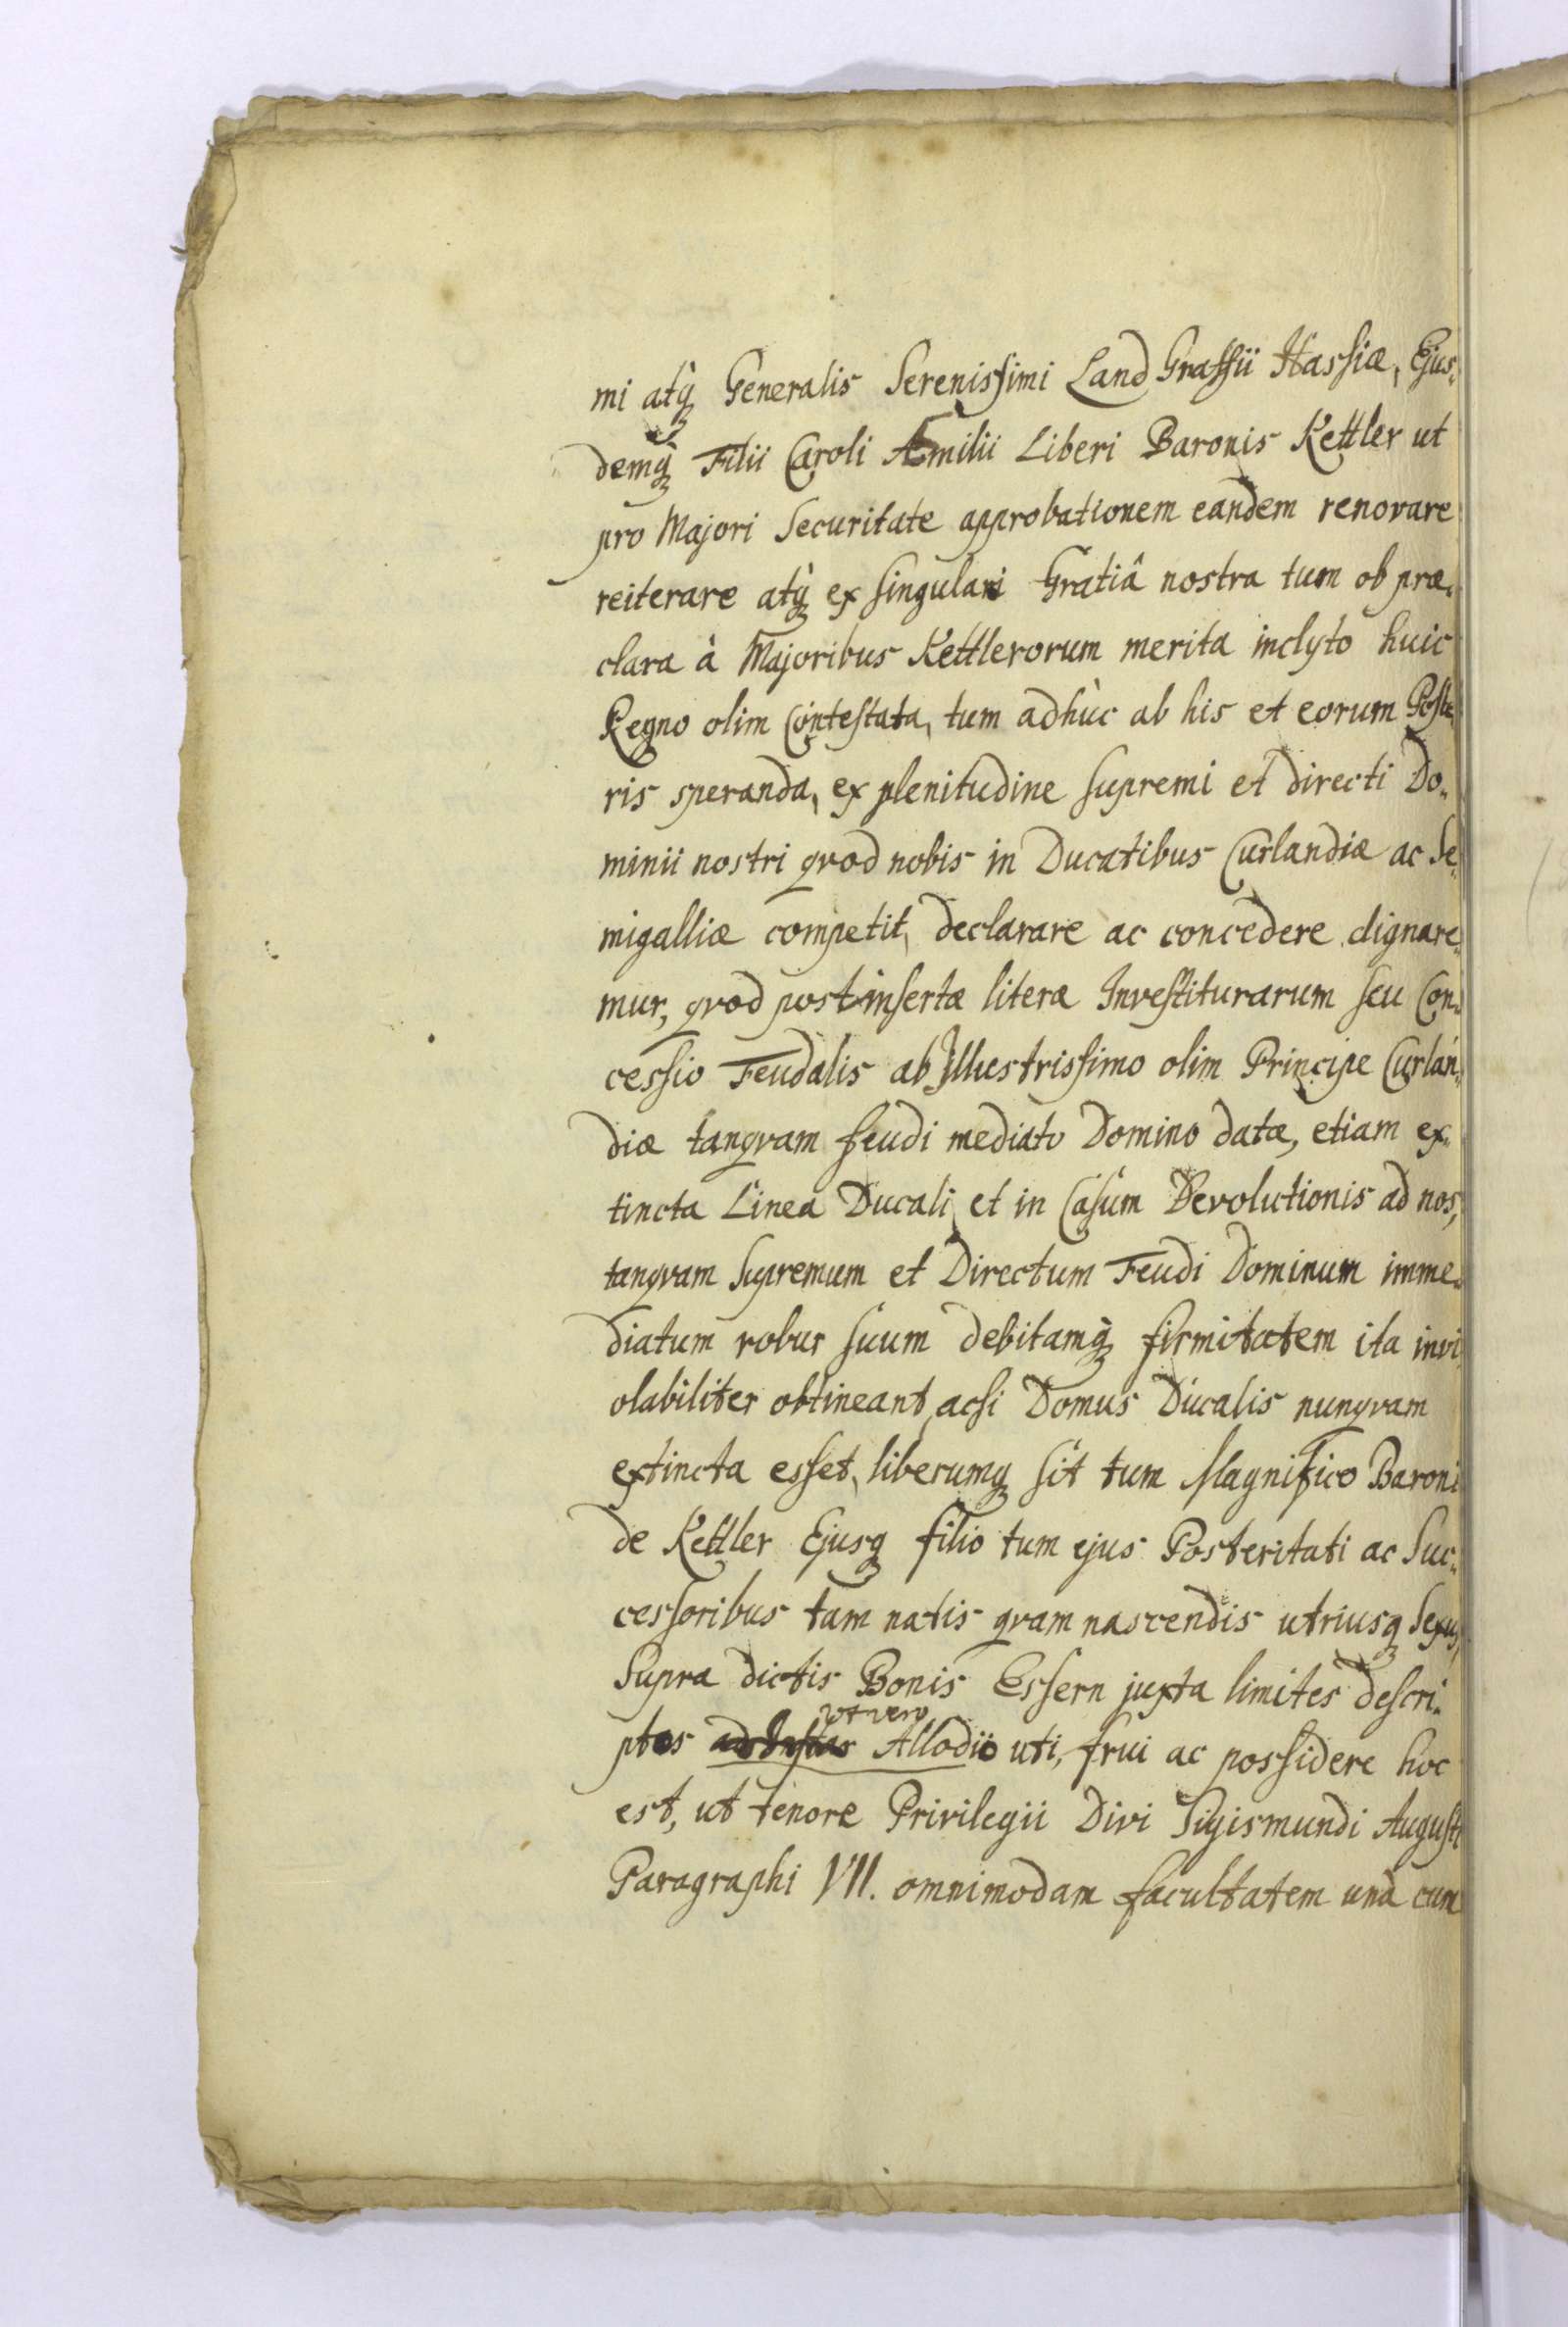 mi atq̀ Generalis Serenissimi Land Graffii Hassiæ, Ejus„
demq̀ Filii Caroli Æmilii Liberi Baronis Kettler ut
pro Majori Securitate approbationem eandem renovare
reiterare atq̀ ex singulari Gratiâ nostra tum ob præ„
clara à Majoribus Kettlerorum merita inclyto huic
Regno olim Contestata, tum adhùc ab his et eorum Poste„
ris speranda, ex plenitudine supremi et directi Do„
minii nostri qvod nobis in Ducatibus Curlandiæ ac Se„
migalliæ competit, declarare ac concedere dignare„
mur, qvod post insertæ literæ Investiturarum seu Con„
cessio Feudalis ab Illustrissimo olim Principe Curlan„
diæ tanqvam feudi mediato Domino datæ, etiam ex„
tincta Linea Ducali et in Casum Devolutionis ad nos,
tanqvam Supremum et Directum Feudi Dominum imme„
diatum robur suum debitamq̀ firmitatem ita invi
olabiliter obtineant, acsi Domus Ducalis nunqvam
extincta esset, liberumq sit tum Magnifico Baroni
de Kettler Ejusq filio tum ejus Posteritati ac Suc„
cessoribus tam natis qvam nascendis utriusq Sexus,
Supra dictis Bonis Essern juxta limites descri„
ut vero
ptos ad Instar Allodiio uti, frui ac possidere hoc
est, ut tenore Privilegii Divi Sigismundi Augusti
Paragraphi VII. omnimodam facultatem unà cum